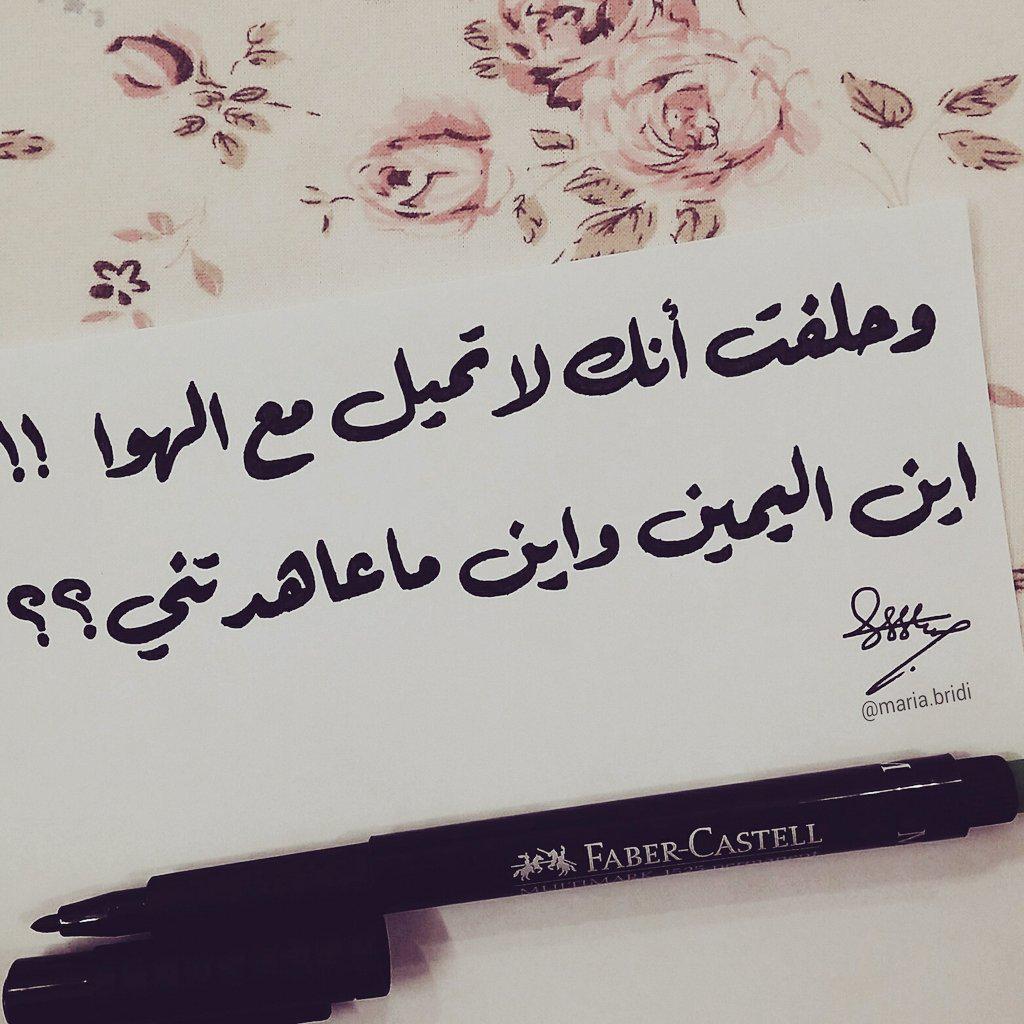 وحلفت أنك لا تميل مع الهوا !!
اين اليمين واين ما عاهدتني ؟؟
@maria.bridi
FABER-CASTELL